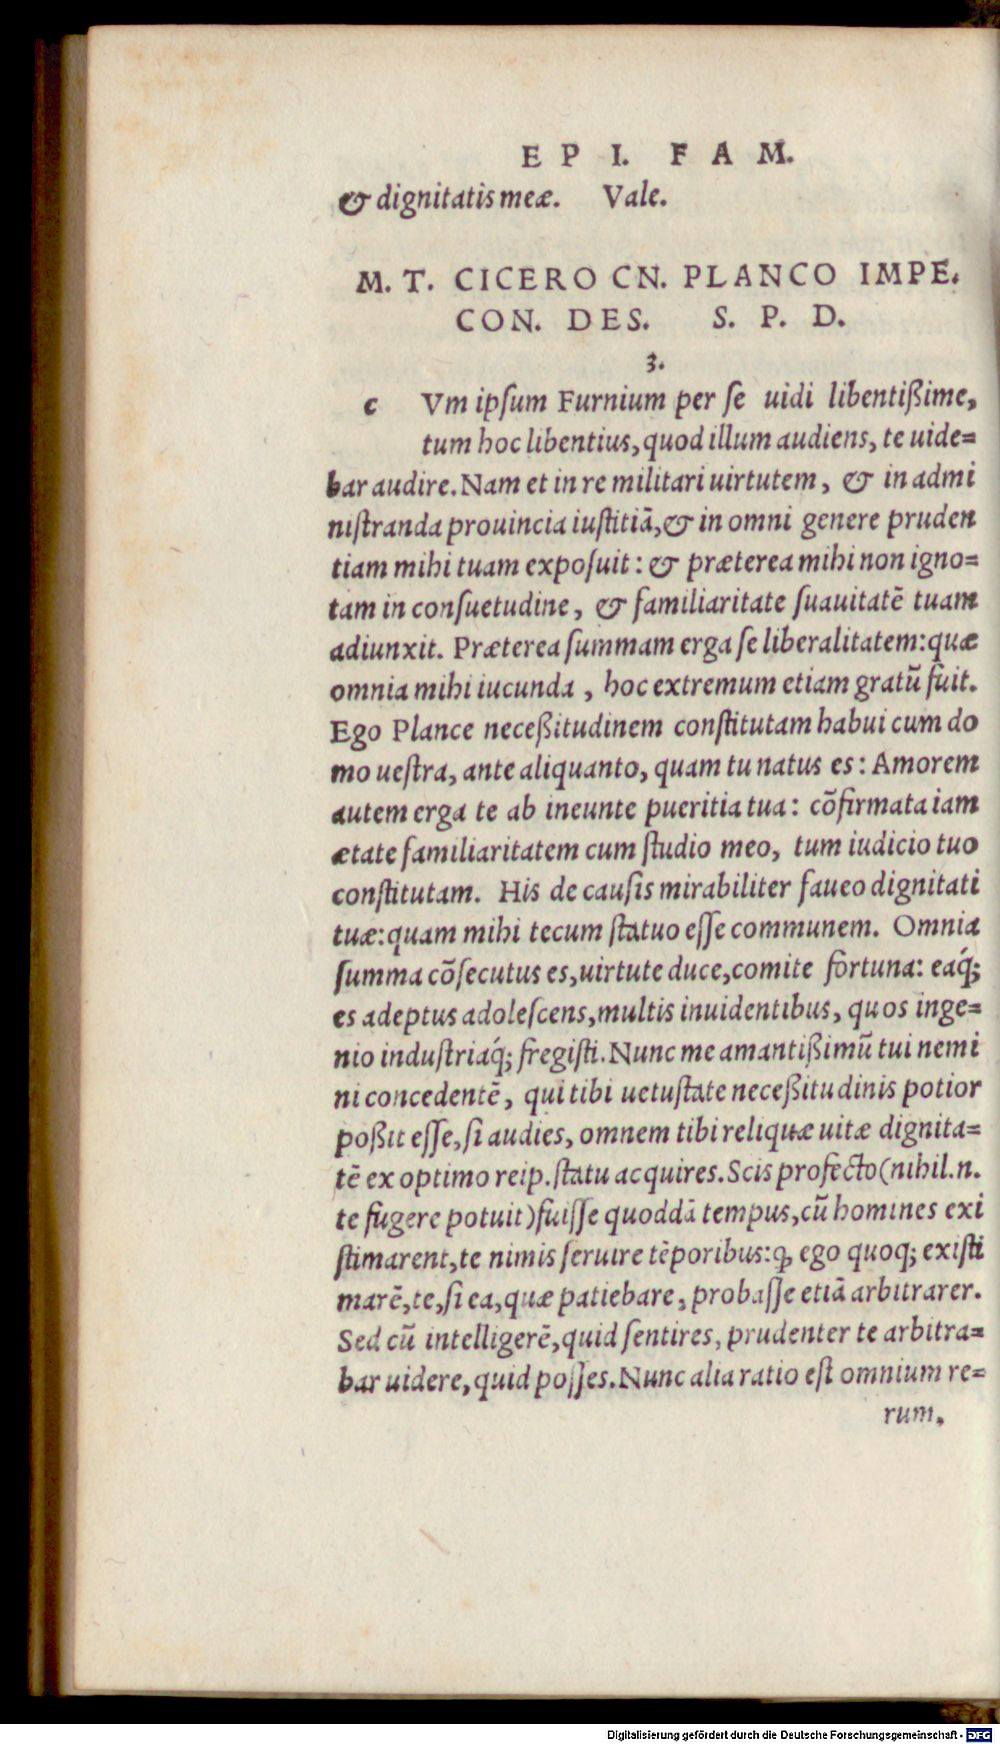 EPI. FAM.
& dignitatis meæ. Vale.
M. T. CICERO CN. PLANCO IMPE.
CON. DES. S. P. D.
3.
c Vm ipſum Furnium per ſe uidi libentißime,
tum hoc libentius, quod illum audiens, te uide=
bar audire. Nam et in re militari uirtutem, & in admi
niſtranda prouincia iuſtitiā, & in omni genere pruden
tiam mihi tuam expoſuit: & præterea mihi non igno=
tam in conſuetudine, & familiaritate ſuauitatē tuam
adiunxit. Præterea ſummam erga ſe liberalitatem: quæ
omnia mihi iucunda, hoc extremum etiam gratū fuit.
Ego Plance neceßitudinem conſtitutam habui cum do
mo ueſtra, ante aliquanto, quam tu natus es: Amorem
autem erga te ab ineunte pueritia tua: cōfirmata iam
ætate familiaritatem cum ſtudio meo, tum iudicio tuo
conſtitutam. His de cauſis mirabiliter faueo dignitati
tuæ: quam mihi tecum ſtatuo eſſe communem. Omnia
ſumma cōſecutus es, uirtute duce, comite fortuna: eaq́;
es adeptus adoleſcens, multis inuidentibus, quos inge=
nio induſtriaq́; fregiſti. Nunc me amantißimū tui nemi
ni concedentē, qui tibi uetuſtate neceßitudinis potior
poßit eſſe, ſi audies, omnem tibi reliquæ uitæ dignita=
tē ex optimo reip. ſtatu acquires. Scis profecto (nihil .n.
te fugere potuit) fuiſſe quoddā tempus, cū homines exi
ſtimarent, te nimis ſeruire tēporibus: ꝙ ego quoq; exiſti
marē, te, ſi ea, quæ patiebare, probaſſe etiā arbitrarer.
Sed cū intelligerē, quid ſentires, prudenter te arbitra=
bar uidere, quid poſſes. Nunc alia ratio eſt omnium re=
rum,
Digitalisierung gefördert durch die Deutsche Forschungsgemeinschaft - DFG